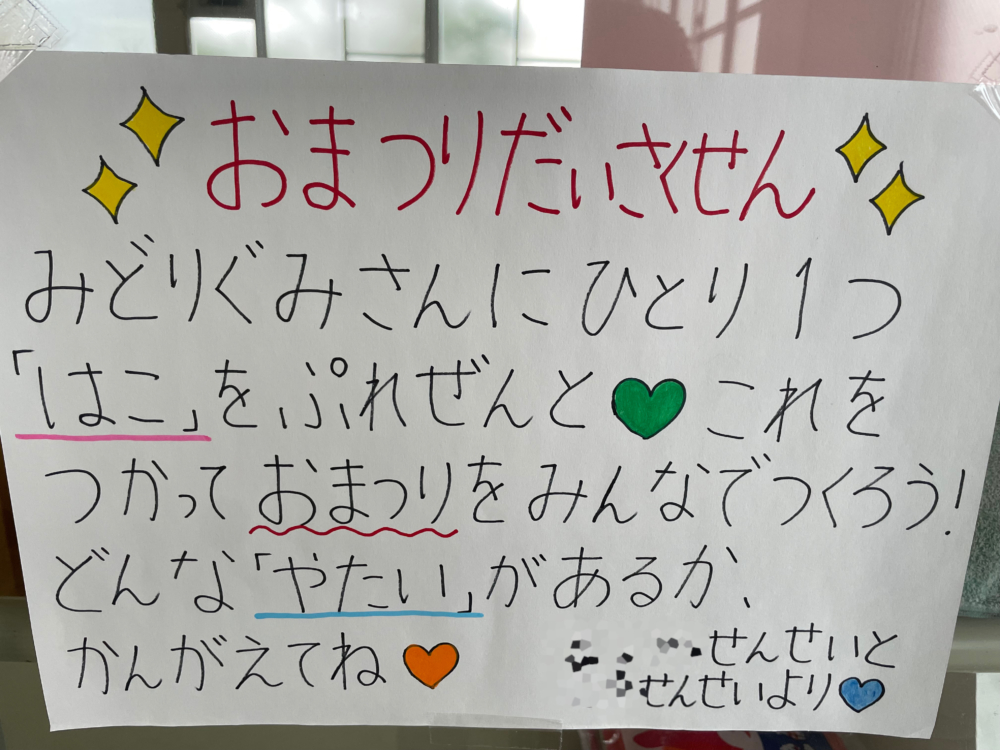 おまつりだいさくせん
みどりぐみさんにひとり1つ
「はこ」をぷれぜんと これを
つかっておまつりをみんなでつくろう!
どんな「やたい」があるか、
かんがえてね
せんせいと
せんせいより